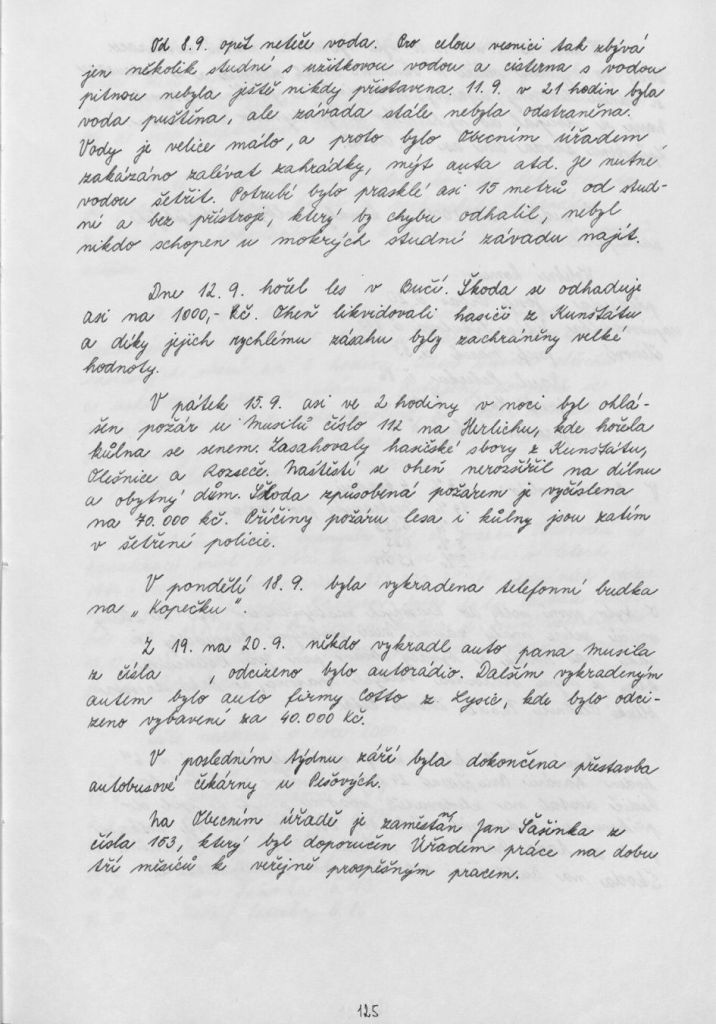 Od 8.9. opět neteče voda. Pro celou vesnici tak zbývá
jen několik studní s užitkovou vodou a cisterna s vodou
pitnou nebyla ještě nikdy přistavena. 11.9. v 21 hodin byla
voda puštěna, ale závada stále nebyla odstraněna.
Vody je velice málo, a proto bylo Obecním úřadem
zakázáno zalévat zahrádky, mýt auta atd. Je nutné
vodou šetřit. Potrubí bylo prasklé asi 15 metrů od stud-
ně a bez přístroje, který by chybu odhalil, nebyl
nikdo schopen u mokrých studní závadu najít.
Dne 12.9. hořel les v Bučí. Škoda se odhaduje
asi na 1000,- Kč. Oheň likvidovali hasiči z Kunštátu
a díky jejich rychlému zásahu byly zachráněny velké
hodnoty.
V pátek 15.9. asi ve 2 hodiny v noci byl ohlá-
šen požár u Musilů číslo 112 na Herlichu, kde hořela
kůlna se senem. Zasahovaly hasičské sbory z Kunštátu,
Olešnice a Rozseče. Naštěstí se oheň nerozšířil na dílnu
a obytný dům. Škoda způsobená požárem je vyčíslena
na 70.000 Kč. Příčiny požáru lesa i kůlny jsou zatím
v šetření policie.
V pondělí 18.9. byla vykradena telefonní budka
na „Kopečku".
Z 19. na 20.9. někdo vykradl auto pana Musila
z čísla , odcizeno bylo autorádio. Dalším vykradeným
autem bylo auto firmy Cotto z Lysic, kde bylo odci-
zeno vybavení za 40.000 Kč.
V posledním týdnu září byla dokončena přestavba
autobusové čekárny u Pešových.
Na Obecním úřadě je zaměstnán Jan Šašinka z
čísla 153, který byl doporučen Úřadem práce na dobu
tří měsíců k veřejně prospěšným pracem.
125